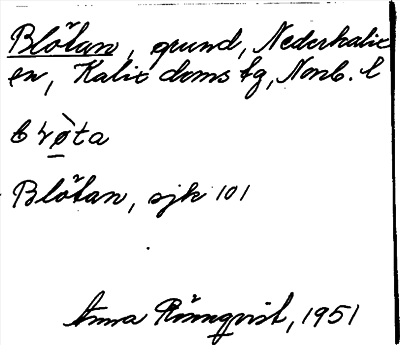 Blötan, grund, Nederkalix
sn, Kalix doms tg, Norrb. l
Blötan, sjk 101
Anna Rönnqvist, 1951